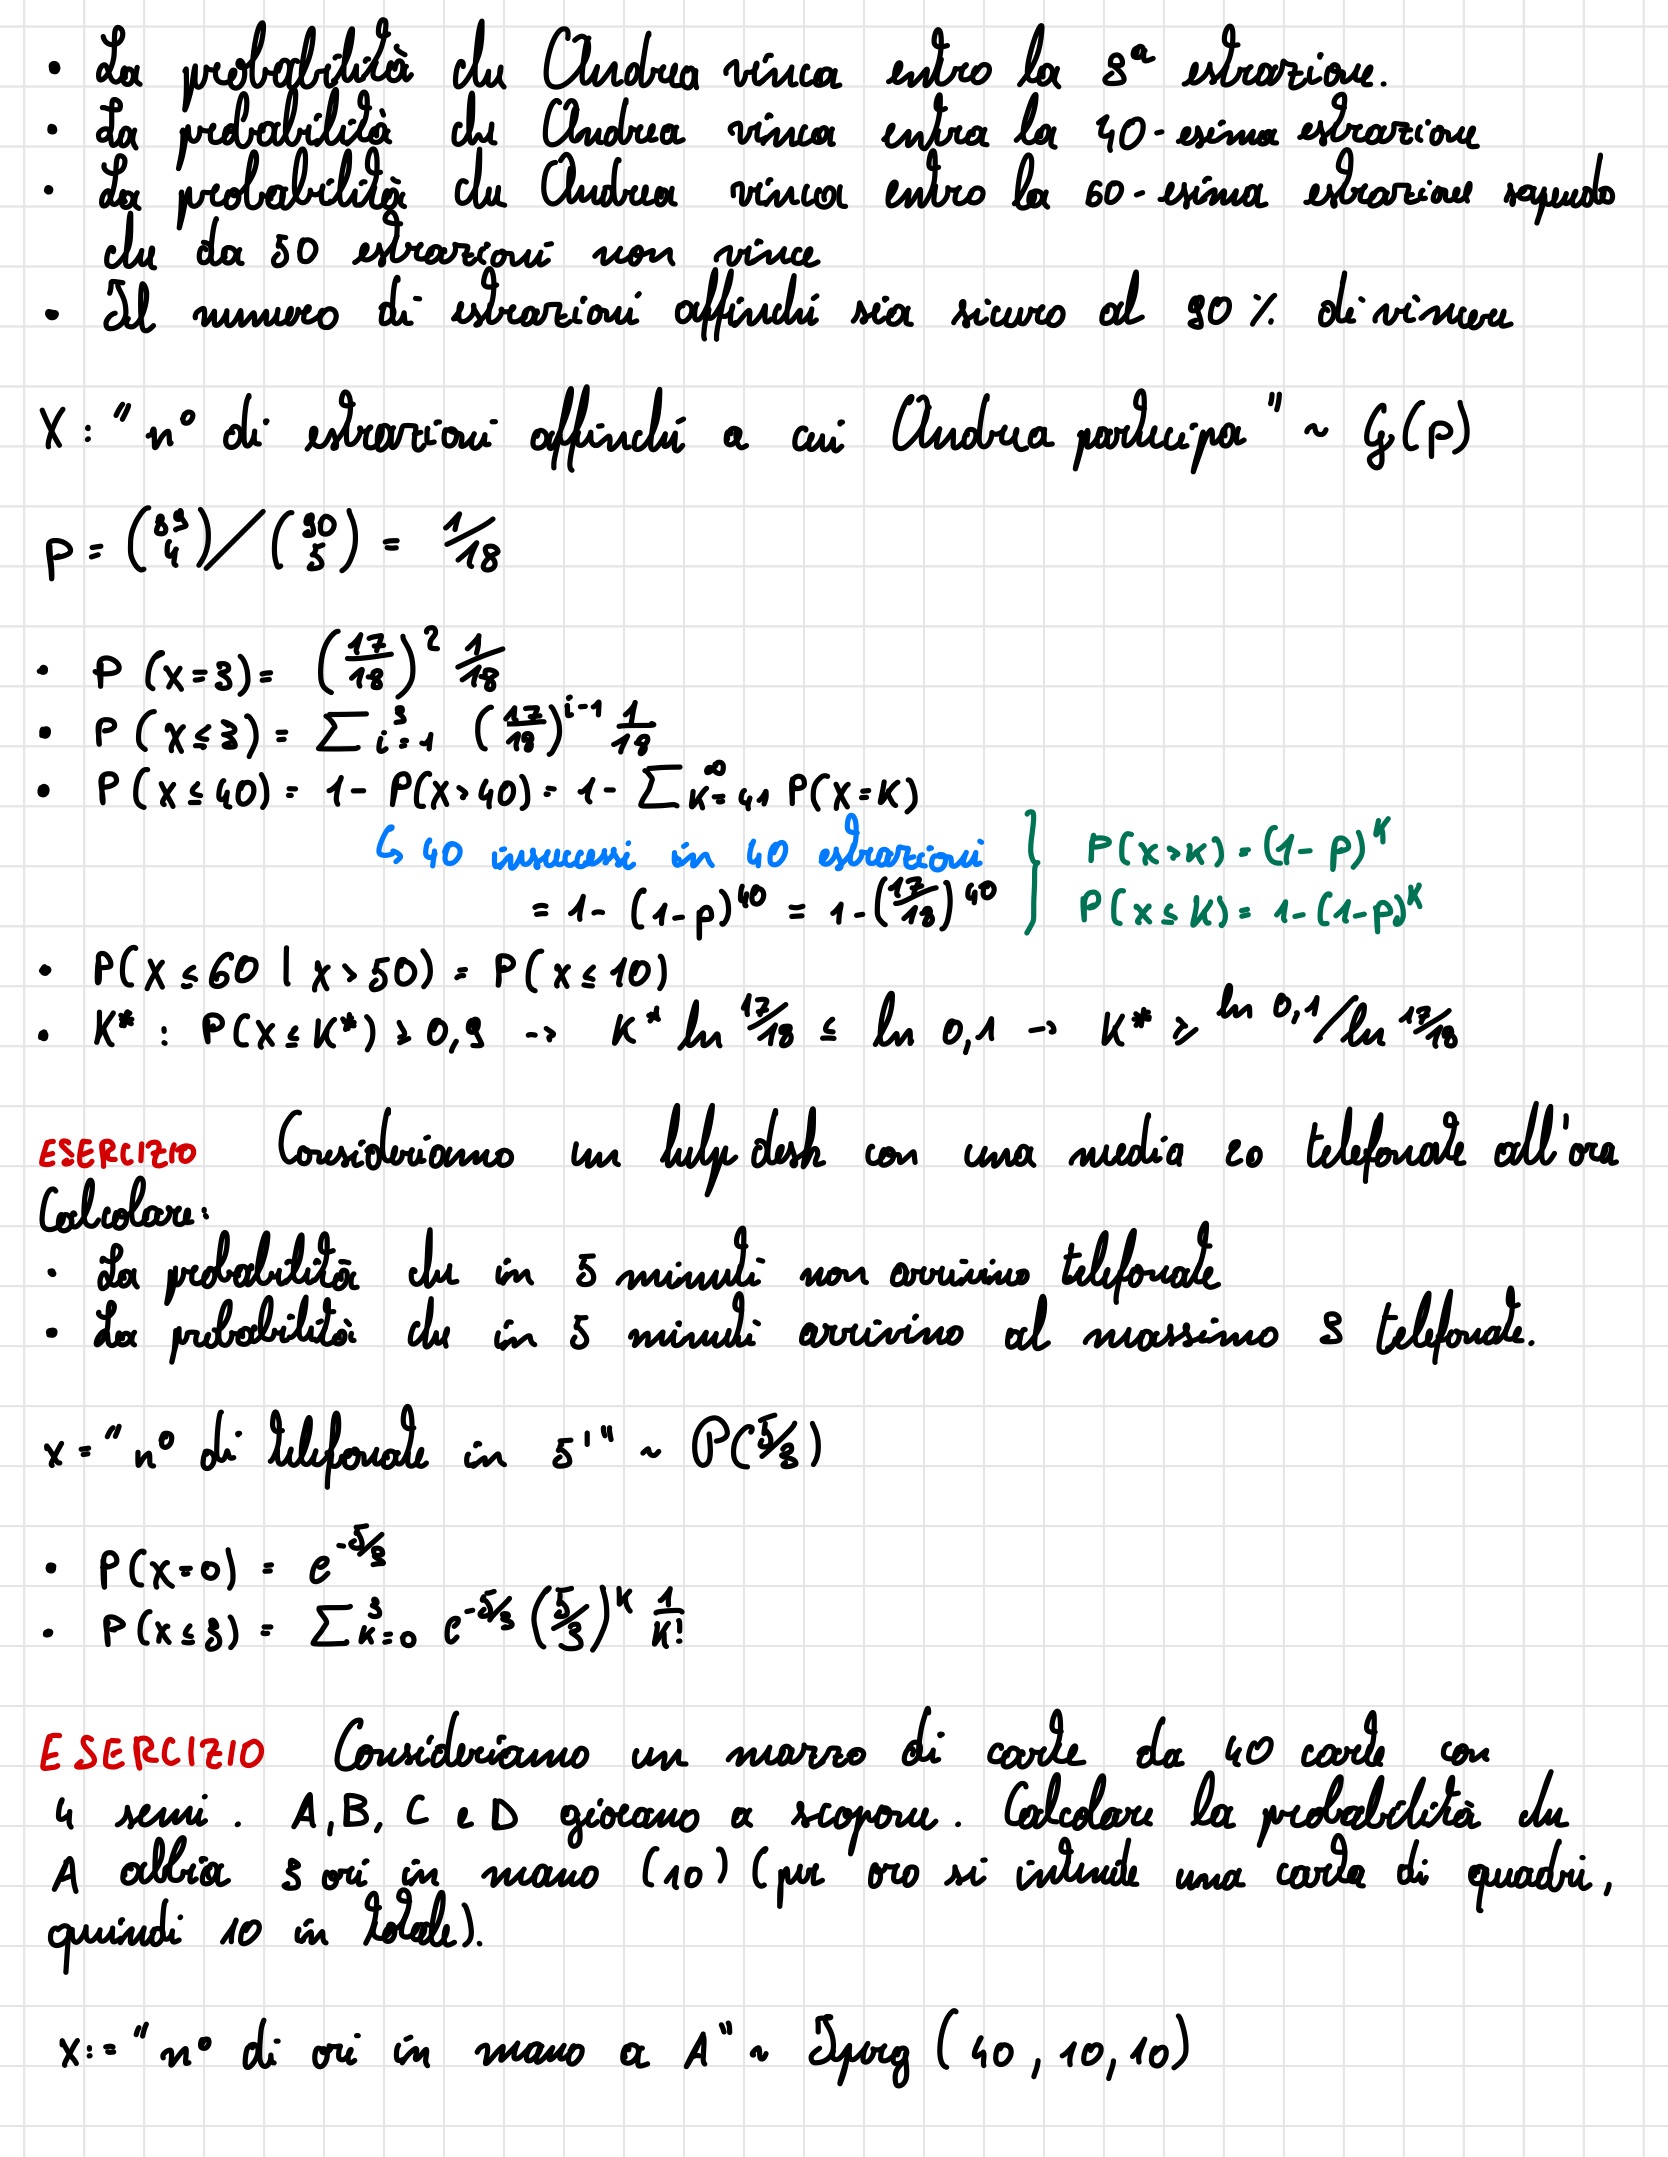 • La probabilità che Andrea vinca entro la 3ª estrazione.
• La probabilità che Andrea vinca entra la 40-esima estrazione
• La probabilità che Andrea vinca entro la 60-esima estrazione sapendo
che da 50 estrazioni non vince
• Il numero di estrazioni affinché sia sicuro al 90% di vincere
X: "n° di estrazioni affinché a cui Andrea partecipa" ~ G(p)
p = (89 4)/(90 5) = 1/18
• P(X=3) = (17/18)² 1/18
• P(X≤3) = ∑ i=1 3 (17/18)^{i-1} 1/18
• P(X≤40) = 1 - P(X>40) = 1 - ∑ K=41 ∞ P(X=K)
↳ 40 insuccessi in 40 estrazioni } P(X>K) = (1-p)^K
= 1 - (1-p)^40 = 1 - (17/18)^40 P(X≤K) = 1-(1-p)^K
• P(X≤60 | X>50) = P(X≤10)
• K* : P(X≤K*) ≥ 0,9 → K* ln 17/18 ≤ ln 0,1 → K* ≥ ln 0,1/ln 17/18
ESERCIZIO Consideriamo un help desk con una media 20 telefonate all'ora
Calcolare:
• La probabilità che in 5 minuti non arrivino telefonate
• La probabilità che in 5 minuti arrivino al massimo 3 telefonate.
X = "n° di telefonate in 5'" ~ P(5/3)
• P(X=0) = e^{-5/3}
• P(X≤3) = ∑ K=0 3 e^{-5/3} (5/3)^K 1/K!
ESERCIZIO Consideriamo un mazzo di carte da 40 carte con
4 semi. A, B, C e D giocano a scopone. Calcolare la probabilità che
A abbia 3 ori in mano (10) (per oro si intende una carta di quadri,
quindi 10 in totale).
X:= "n° di ori in mano a A" ~ Iperg (40, 10, 10)